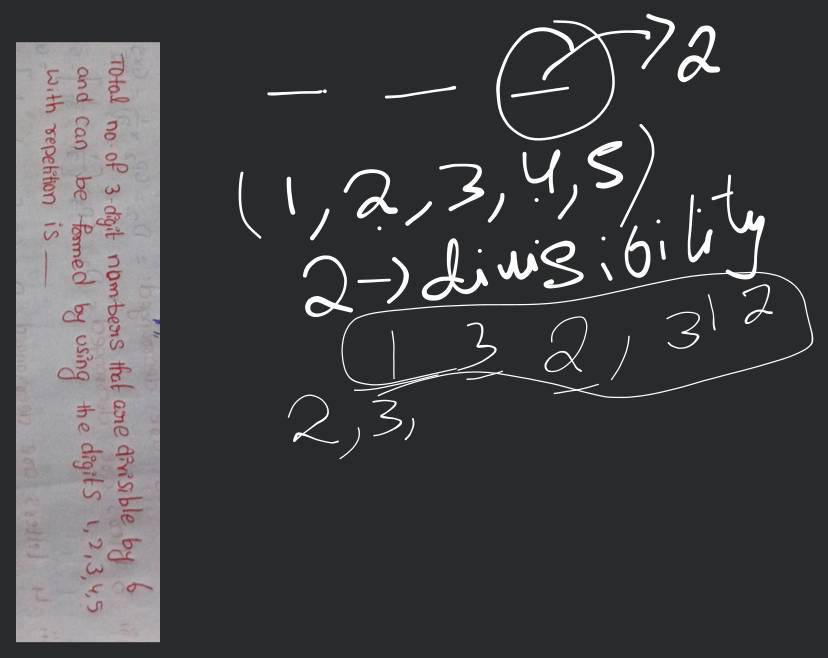 Total no. of 3-digit numbers that are divisible by 6
and can be formed by using the digits 1,2,3,4,5
with repetition is ___
_ _ _ → 2
(1, 2, 3, 4, 5)
2 → divisibility
1 3 2, 3 1 2
2, 3,